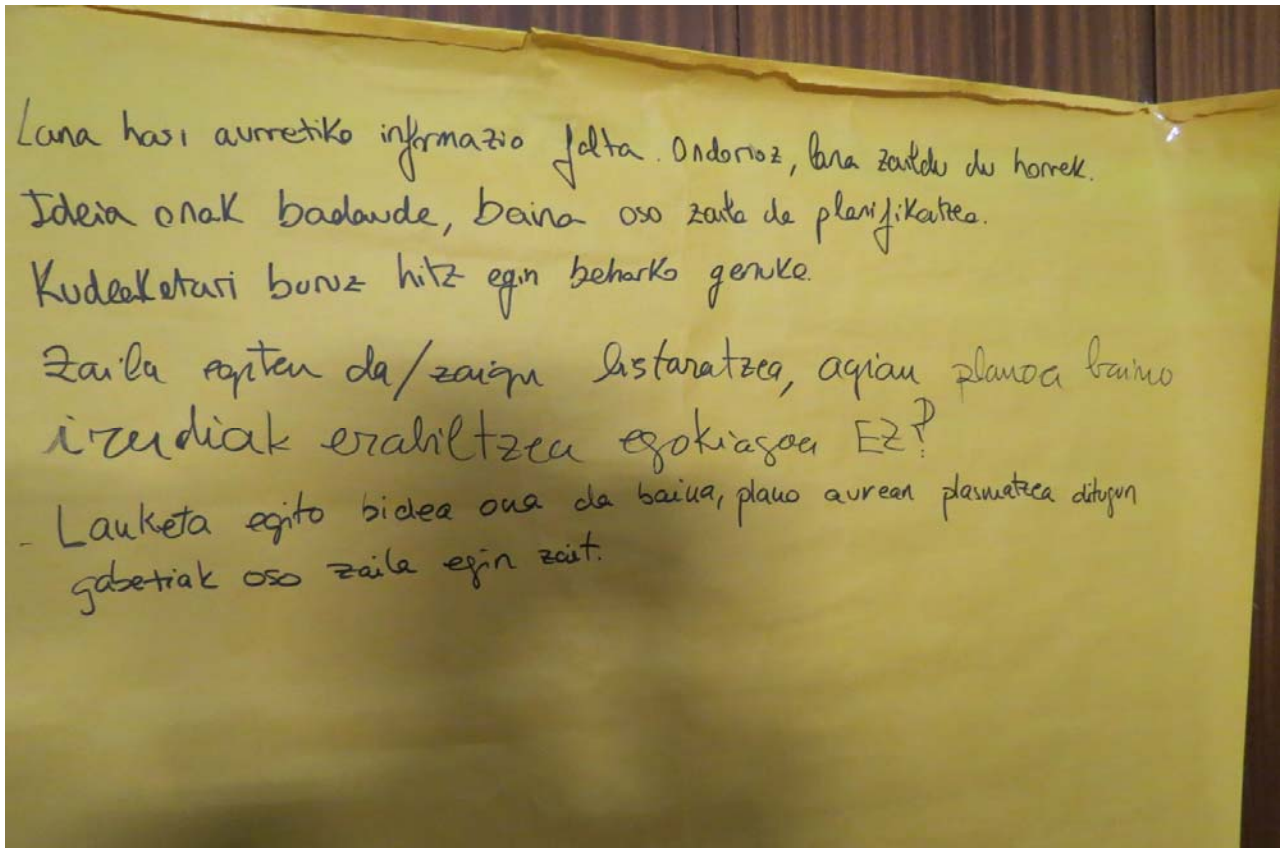 Lana hasi aurretiko informazio falta. Ondorioz, lana zaildu du horrek.
Ideia onak badaude, baina oso zaila da planifikatzea.
Kudeaketari buruz hitz egin beharko genuke.
Zaila egiten da/zaigu listaratzea, agian planoa baino
irudiak erabiltzea egokiagoa EZ?
- Lanketa egito bidea ona da baina, plano aurean plasmatzea ditugun
gabetiak oso zaila egin zait.